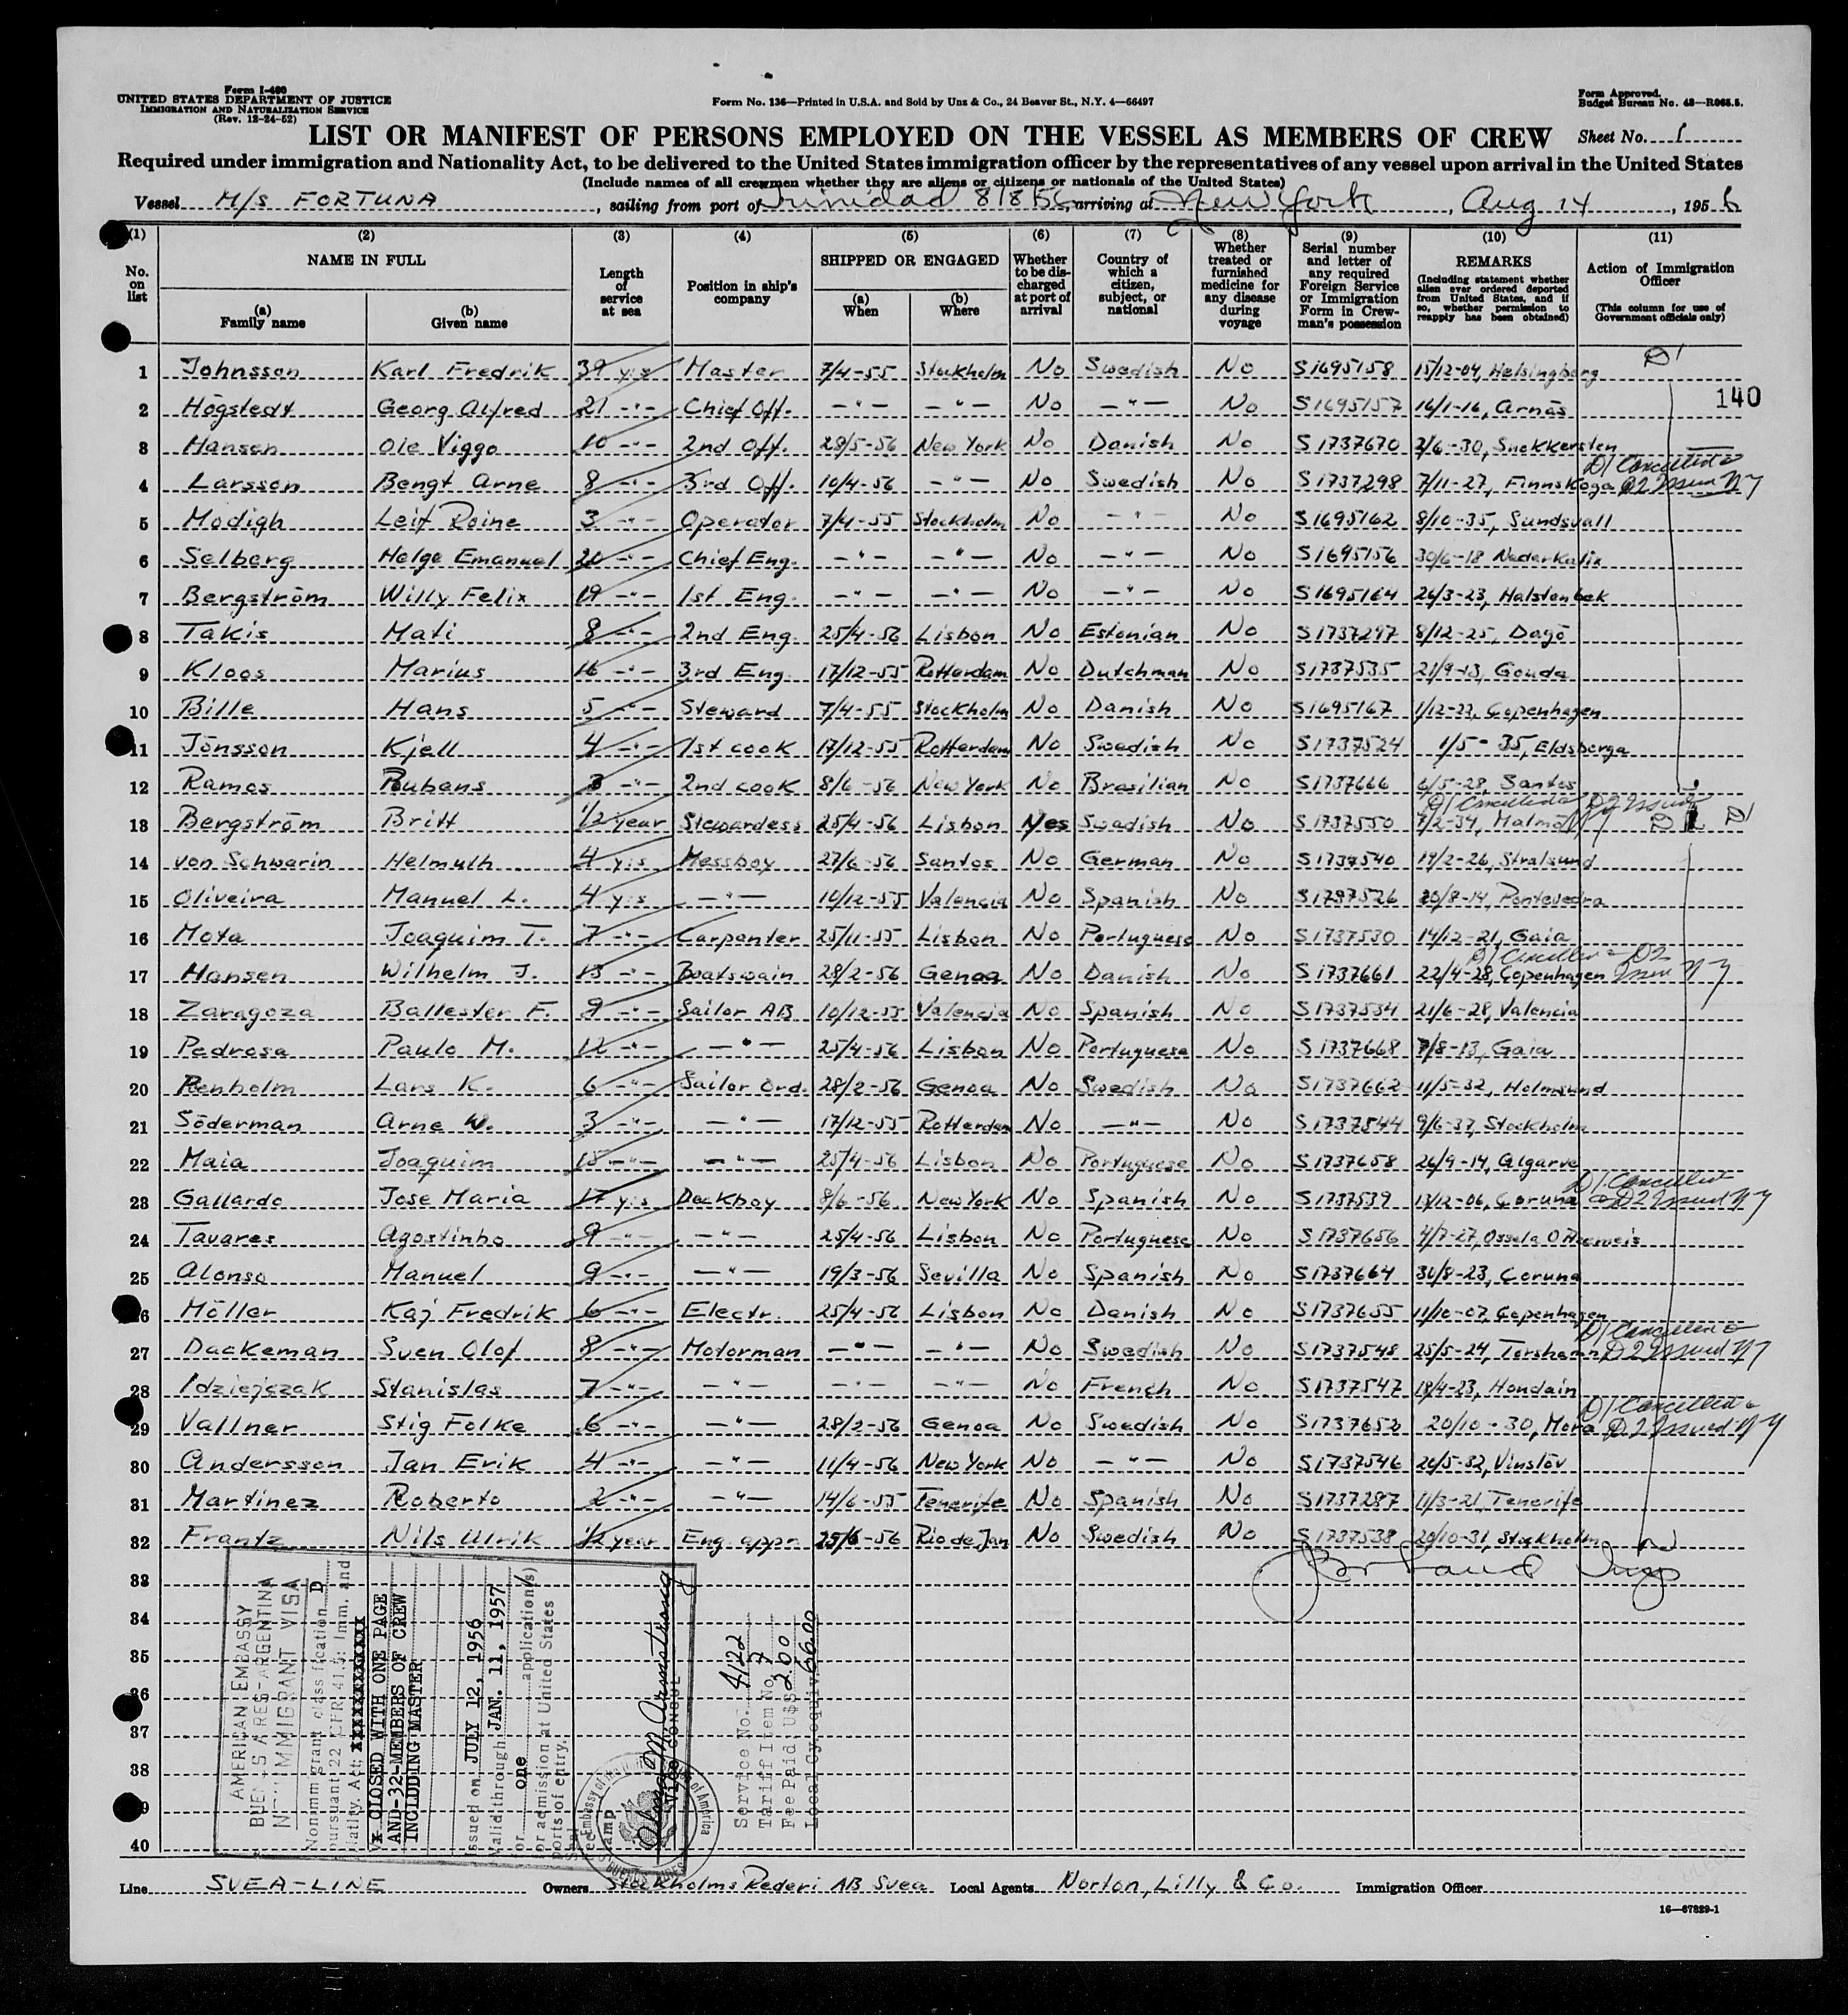 Form I-480
UNITED STATES DEPARTMENT OF JUSTICE
IMMIGRATION AND NATURALIZATION SERVICE
(Rev. 12-24-52)
Form No. 136—Printed in U.S.A. and Sold by Unz & Co., 24 Beaver St., N.Y. 4—66497
Form Approved.
Budget Bureau No. 43—R065.5.
LIST OR MANIFEST OF PERSONS EMPLOYED ON THE VESSEL AS MEMBERS OF CREW Sheet No. 1
Required under immigration and Nationality Act, to be delivered to the United States immigration officer by the representatives of any vessel upon arrival in the United States
(Include names of all crewmen whether they are aliens or citizens or nationals of the United States)
Vessel M/S FORTUNA, sailing from port of Trinidad 8/8 56, arriving at New York, Aug 14, 1956
(1) (2) (3) (4) (5) (6) (7) (8) (9) (10) (11)
No. on list
NAME IN FULL
(a) Family name
(b) Given name
Length of service at sea
Position in ship's company
SHIPPED OR ENGAGED
(a) When
(b) Where
Whether to be discharged at port of arrival
Country of which a citizen, subject, or national
Whether treated or furnished medicine for any disease during voyage
Serial number and letter of any required Foreign Service or Immigration Form in Crewman's possession
REMARKS
(Including statement whether alien ever ordered deported from United States, and if so, whether permission to reapply has been obtained)
Action of Immigration Officer
(This column for use of Government officials only)
1 Johnsson Karl Fredrik 39 yis Master 7/4-55 Stockholm No Swedish No S1695158 15/12-04, Helsingborg D1
140
2 Högstedt Georg Alfred 21 -"- Chief Off. -"- -"- No -"- No S1695157 16/1-16, Arnäs
3 Hansen Ole Viggo 10 -"- 2nd Off. 28/5-56 New York No Danish No S1737670 2/6-30, Snekkersten
4 Larsson Bengt Arne 8 -"- 3rd Off. 10/4-56 -"- No Swedish No S1737298 7/11-27, Finnskoga D1 Cancelled & D2 Issued NY
5 Modigh Leif Roine 3 -"- Operator 7/4-55 Stockholm No -"- No S1695162 8/10-35, Sundsvall
6 Selberg Helge Emanuel 20 -"- Chief Eng. -"- -"- No -"- No S1695156 30/6-18 Nederkalix
7 Bergström Willy Felix 19 -"- 1st Eng. -"- -"- No -"- No S1695164 26/3-23, Halstenbek
8 Takis Mati 8 -"- 2nd Eng. 25/4-56 Lisbon No Estonian No S1737297 8/12-25, Dagö
9 Kloos Marius 16 -"- 3rd Eng. 17/12-55 Rotterdam No Dutchman No S1737535 21/9-13, Gouda
10 Bille Hans 5 -"- Steward 7/4-55 Stockholm No Danish No S1695167 1/12-22, Copenhagen
11 Jönsson Kjell 4 -"- 1st cook 17/12-55 Rotterdam No Swedish No S1737524 1/5-35, Eldsberga
12 Ramos Rubens 3 -"- 2nd cook 8/6-56 New York No Brasilian No S1737666 6/5-28, Santos
13 Bergström Britt 1/2 year Stewardess 25/4-56 Lisbon Yes Swedish No S1737550 7/2-34, Malmö D1 Cancelled & D2 Issued NY D1
14 von Schwerin Helmuth 4 yis Messboy 27/6-56 Santos No German No S1737540 19/2-26, Stralsund
15 Oliveira Manuel L. 4 yis -"- 10/12-55 Valencia No Spanish No S1737526 20/8-14, Pontevedra
16 Mota Joaquim T. 7 -"- Carpenter 25/11-55 Lisbon No Portuguese No S1737530 14/12-21, Gaia
17 Hansen Wilhelm J. 13 -"- Boatswain 28/2-56 Genoa No Danish No S1737661 22/4-28, Copenhagen D1 Cancelled & D2 Issued NY
18 Zaragoza Ballester F. 9 -"- Sailor AB 10/12-55 Valencia No Spanish No S1737534 21/6-28, Valencia
19 Pedrosa Paulo M. 12 -"- -"- 25/4-56 Lisbon No Portuguese No S1737668 7/8-13, Gaia
20 Renholm Lars K. 6 -"- Sailor Ord. 28/2-56 Genoa No Swedish No S1737662 11/5-32, Holmsund
21 Söderman Arne W. 3 -"- -"- 17/12-55 Rotterdam No -"- No S1737544 9/6-37, Stockholm
22 Maia Joaquim 15 -"- -"- 25/4-56 Lisbon No Portuguese No S1737658 26/9-14, Algarve
23 Gallardo Jose Maria 17 yis Deckboy 8/6-56 New York No Spanish No S1737539 13/12-06, Coruna D1 Cancelled & D2 Issued NY
24 Tavares Agostinho 9 -"- -"- 25/4-56 Lisbon No Portuguese No S1737656 4/7-27, Ossela
25 Alonso Manuel 9 -"- -"- 19/3-56 Sevilla No Spanish No S1737664 31/8-23, Coruna
26 Möller Kaj Fredrik 6 -"- Electr. 25/4-56 Lisbon No Danish No S1737655 11/10-07, Copenhagen
27 Dackeman Sven Olof 8 -"- Motorman -"- -"- No Swedish No S1737548 25/5-24, Torshamn D1 Cancelled & D2 Issued NY
28 Idziejczak Stanislas 7 -"- -"- -"- -"- No French No S1737547 18/4-23, Houdain
29 Vallner Stig Folke 6 -"- -"- 28/2-56 Genoa No Swedish No S1737652 20/10-30, Mora D1 Cancelled & D2 Issued NY
30 Andersson Jan Erik 4 -"- -"- 11/4-56 New York No -"- No S1737546 26/5-32, Vinslöv
31 Martinez Roberto 2 -"- -"- 14/6-55 Tenerife No Spanish No S1737287 11/3-21, Tenerife
32 Frantz Nils Ulrik 1/2 year Eng. appr. 25/6-56 Rio de Jan No Swedish No S1737538 20/10-31, Stockholm
33
34
35
36
37
38
39
40
AMERICAN EMBASSY
BUENOS AIRES-ARGENTINA
NONIMMIGRANT VISA
Nonimmigrant classification D
pursuant 22 CFR 41.5; Imm. and
Natlty. Act; XXXXXXXXXXXX
CLOSED WITH ONE PAGE
AND-32-MEMBERS OF CREW
INCLUDING MASTER
Issued on JULY 12, 1956
Valid through JAN. 11, 1957
for one application(s)
for admission at United States
ports of entry.
Seal
Fee Stamp
Alma M Armstrong
VICE CONSUL
Embassy of the United States of America
BUENOS AIRES
Service No. 4122
Tariff Item No. 7
Fee Paid, U$S 2.00
Local Cy. equiv. 66.00
Line SVEA-LINE Owners Stockholms Rederi AB Svea Local Agents Norton, Lilly & Co. Immigration Officer
16—67829-1